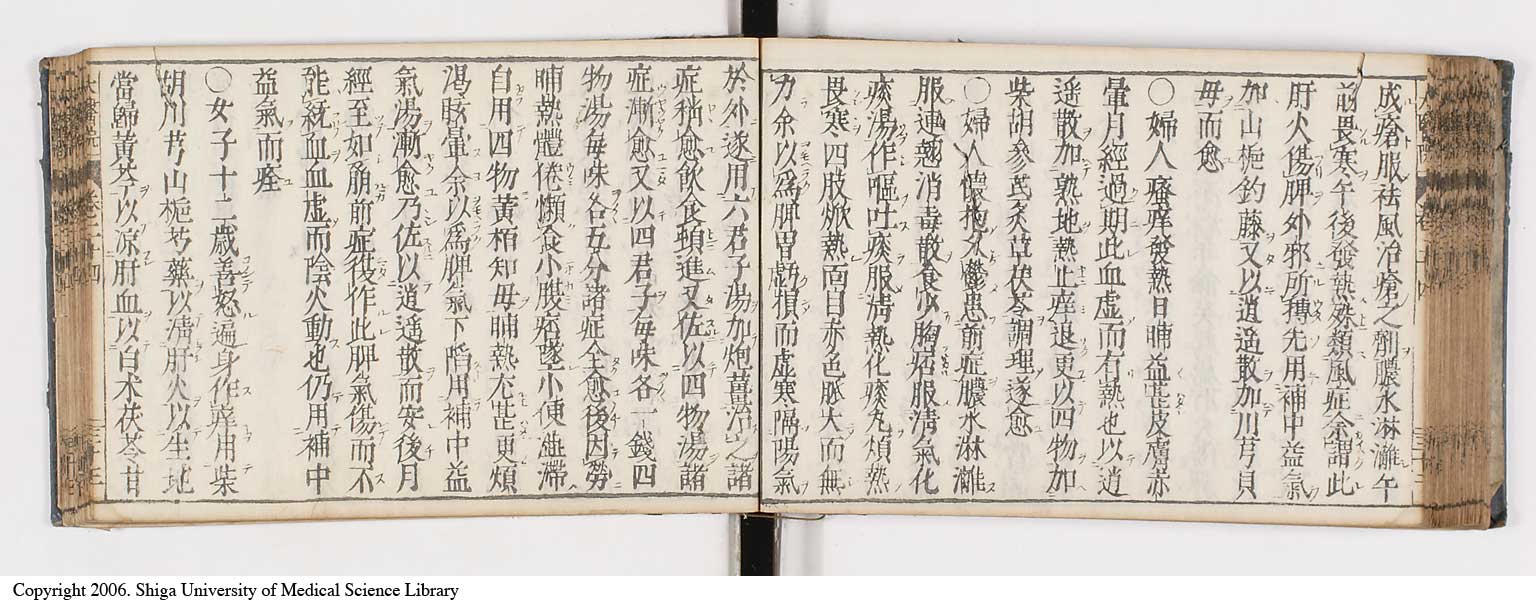 成瘡服祛風治瘡之劑膿水淋漓午
前畏寒午後發熱殊類風症余謂此
肝火傷脾外邪所搏先用補中益氣
加山梔釣藤又以逍遥散加川芎貝
母而愈
○婦人瘙痒發熱日晡益甚皮膚赤
暈月經過期此血虚而有熱也以逍
遥散加熟地熱止痒退更以四物加
柴胡參芪炙草茯苓調理遂愈
○婦人懷抱久鬱患前症膿水淋漓
服連翹消毒散食少胸痞服清氣化
痰湯作嘔吐痰服清熱化痰丸煩熱
畏寒四肢㷔熱面目赤色脉大而無
力余以為脾胃虧損而虚寒隔陽氣
於外遂用六君子湯加炮薑治之諸
症稍愈飲食頓進又佐以四物湯諸
症漸愈又以四君子毎味各一錢四
物湯毎味各五分諸症全愈後因勞
晡熱體倦懶食小腹痞墜小便澁滯
自用四物黄栢知毋晡熱尤甚更煩
渴眩暈余以為脾氣下陷用補中益
氣湯漸愈乃佐以逍遥散而安後月
經至如崩前症復作此脾氣傷而不
能統血血虚而陰火動也仍用補中
益氣而痊
○女子十二歲善怒遍身作痒用柴
胡川芎山梔芍藥以清肝火以生地
當歸黄芩以凉肝血以白朮茯苓甘
Copyright 2006. Shiga University of Medical Science Library